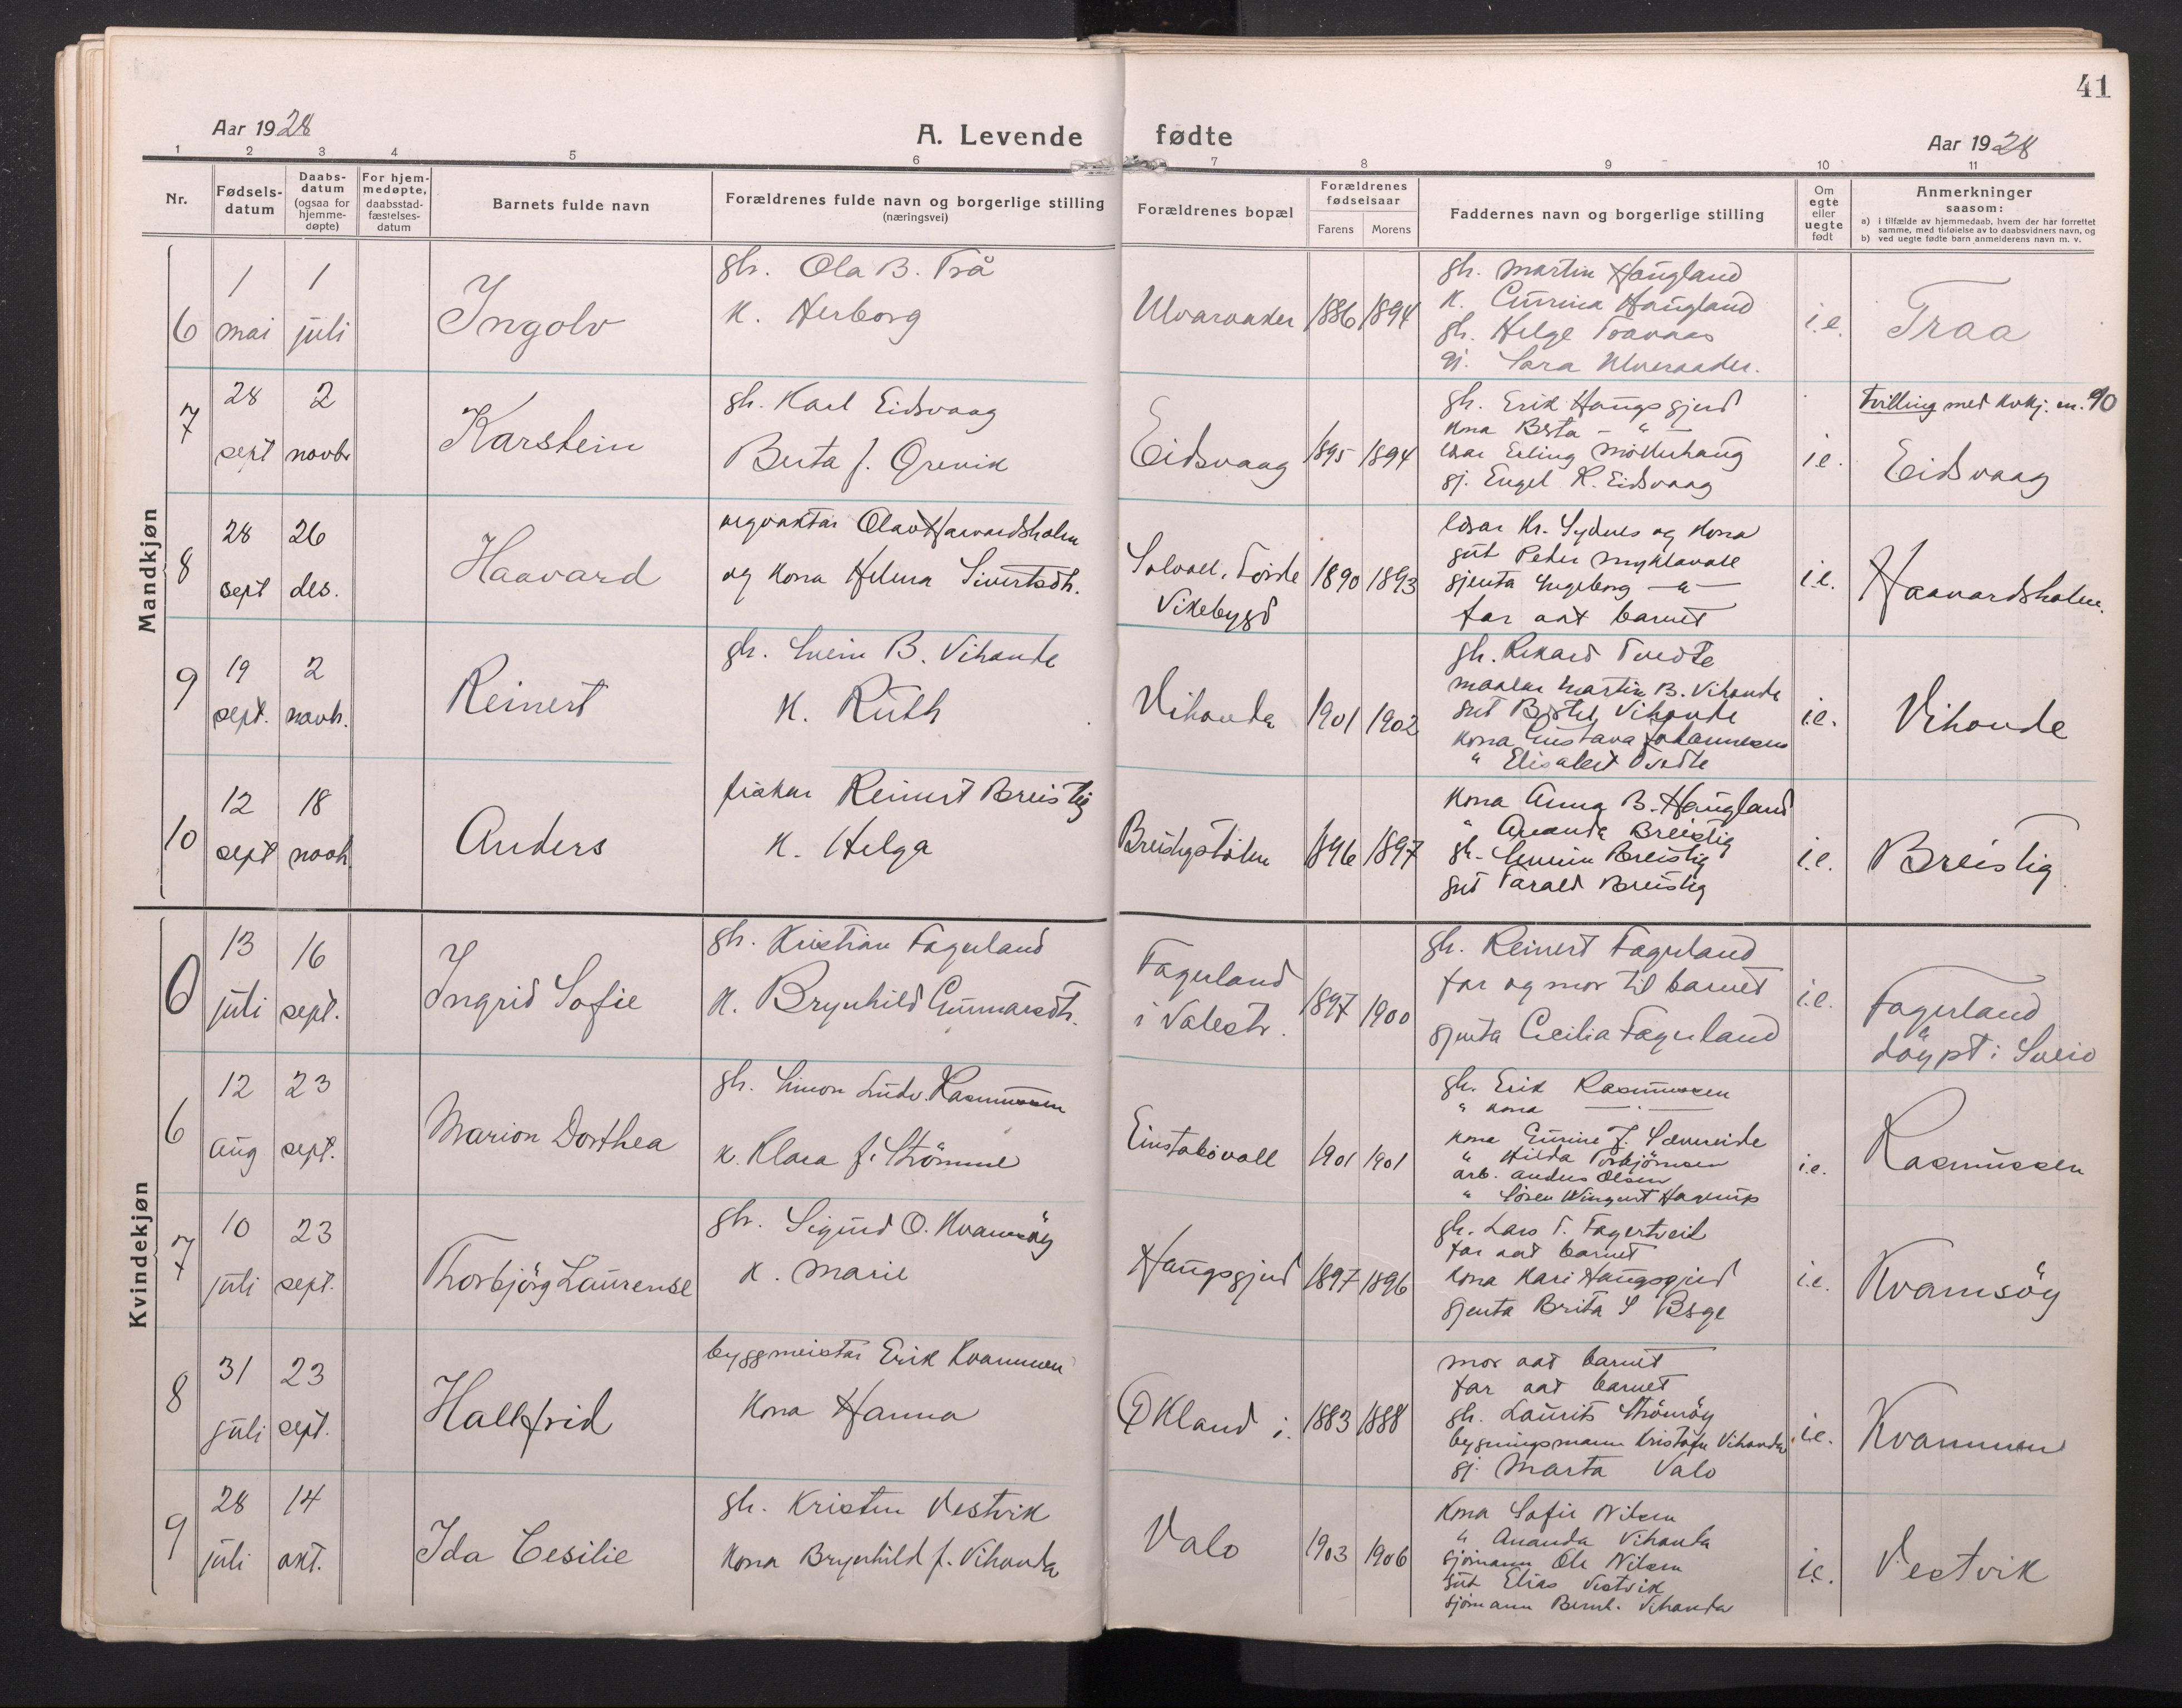 41
Aar 1928
A. Levende fødte
Aar 1928
1 2 3 4 5 6 7 8 9 10 11
Nr.
Fødsels-
datum
Daabs-
datum
(ogsaa for
hjemme-
døpte)
For hjem-
medøpte,
daabsstad-
fæstelses-
datum
Barnets fulde navn
Forældrenes fulde navn og borgerlige stilling
(næringsvei)
Forældrenes bopæl
Forældrenes
fødselsaar
Farens Morens
Faddernes navn og borgerlige stilling
Om
egte
eller
uegte
født
Anmerkninger
saasom:
a) i tilfælde av hjemmedaab, hvem der har forrettet
samme, med tilføielse av to daabsvidners navn, og
b) ved uegte fødte barn anmelderens navn m. v.
Mandkjøn
6
1
mai
1
juli
Ingolv
gbr. Ola B. Trå
K. Herborg
Ulvaraaker
1886 1894
gbr. Martin Haugland
K. Gurina Haugland
gbr. Helge
gj. Sara
i.e.
Traa
7
28
sept
2
novbr
Karstein
gbr. Karl Eidsvaag
Berta f. Grevik
Eidsvaag
1895 1894
gbr. Erik Haugsgjerd
Kona Berta - " -
Erling Möllerhaug
gj. Engel K. Eidsvaag
i.e.
Tvilling med Kvkj. nr. 90
Eidsvaag
8
28
sept
26
des.
Haavard
vegvaktar Olav Haavardsholm
og Kona Helena Sivertsdtr.
Solvall, Förde
Vikebygd
1890 1893
Kr. Sydnes og Kona
gut Peder Myklavoll
gjenta Ingeborg - " -
far aat barnet
i.e.
Haavardsholm.
9
19
sept.
2
novb.
Reinert
gbr. Svein B. Vihovde
K. Ruth
Vihovda
1901 1902
gbr. Rikard Tvedte
maalar Martin B. Vihovda
gut Bertel Vihovde
Kona Gustava Johannesen
" Elisabet Tvedte
i.e.
Vihovde
10
12
sept
18
novb.
Anders
fiskar Reinert Breistig
K. Helga
Breistigstölen
1896 1897
Kona Anna B. Haugland
" Ananda Breistig
gbr. Breistig
gut Tarald Breistig
i.e.
Breistig
Kvindekjøn
0
13
juli
16
sept.
Ingrid Sofie
gbr. Kristian Fagerland
K. Brynhild Gunnarsdtr.
Fagerland
i Valestr.
1897 1900
gbr. Reinert Fagerland
far og mor til barnet
gjenta Cecilia Fagerland
i.e.
Fagerland
döypt i Sveio
6
12
aug
23
sept.
Marion Dorthea
gbr. Simon Ludv. Rasmussen
K. Klara f. Strömme
Einstabövoll
1901 1901
gbr. Erik Rasmussen
" Kona — " —
Kona Gurine J. Sævereide
" Hilda Torbjörnsen
arb. Anders Olsen
" Sören Wingert Hagerup
i.e.
Rasmussen
7
10
juli
23
sept.
Thorbjörg Laurense
gbr. Sigurd O. Kvamsöy
K. Marie
Haugsgjerd
1897 1896
gbr. Lars T. Fagertveit
far aat barnet
Kona Kari Haugsgjerd
gjenta Brita S Bøge
i.e.
Kvamsöy
8
31
juli
23
sept.
Hallfrid
byggmeistar Erik Kvammen
Kona Hanna
Økland i.
1883 1888
mor aat barnet
far aat barnet
gbr. Laurits Strömöy
bygningsmann Kristofer Vihovda
gj. Marta Valo
i.e.
Kvammen
9
28
juli
14
okt.
Ida Cesilie
gbr. Kristen Vestvik
Kona Brynhild f. Vihovda
Valo
1903 1906
Kona Sofie Nilsen
" Ananda Vihovda
sjömann Ole Nilsen
gut Elias Vestvik
sjömann Bernt. Vihovda
i.e.
Vestvik